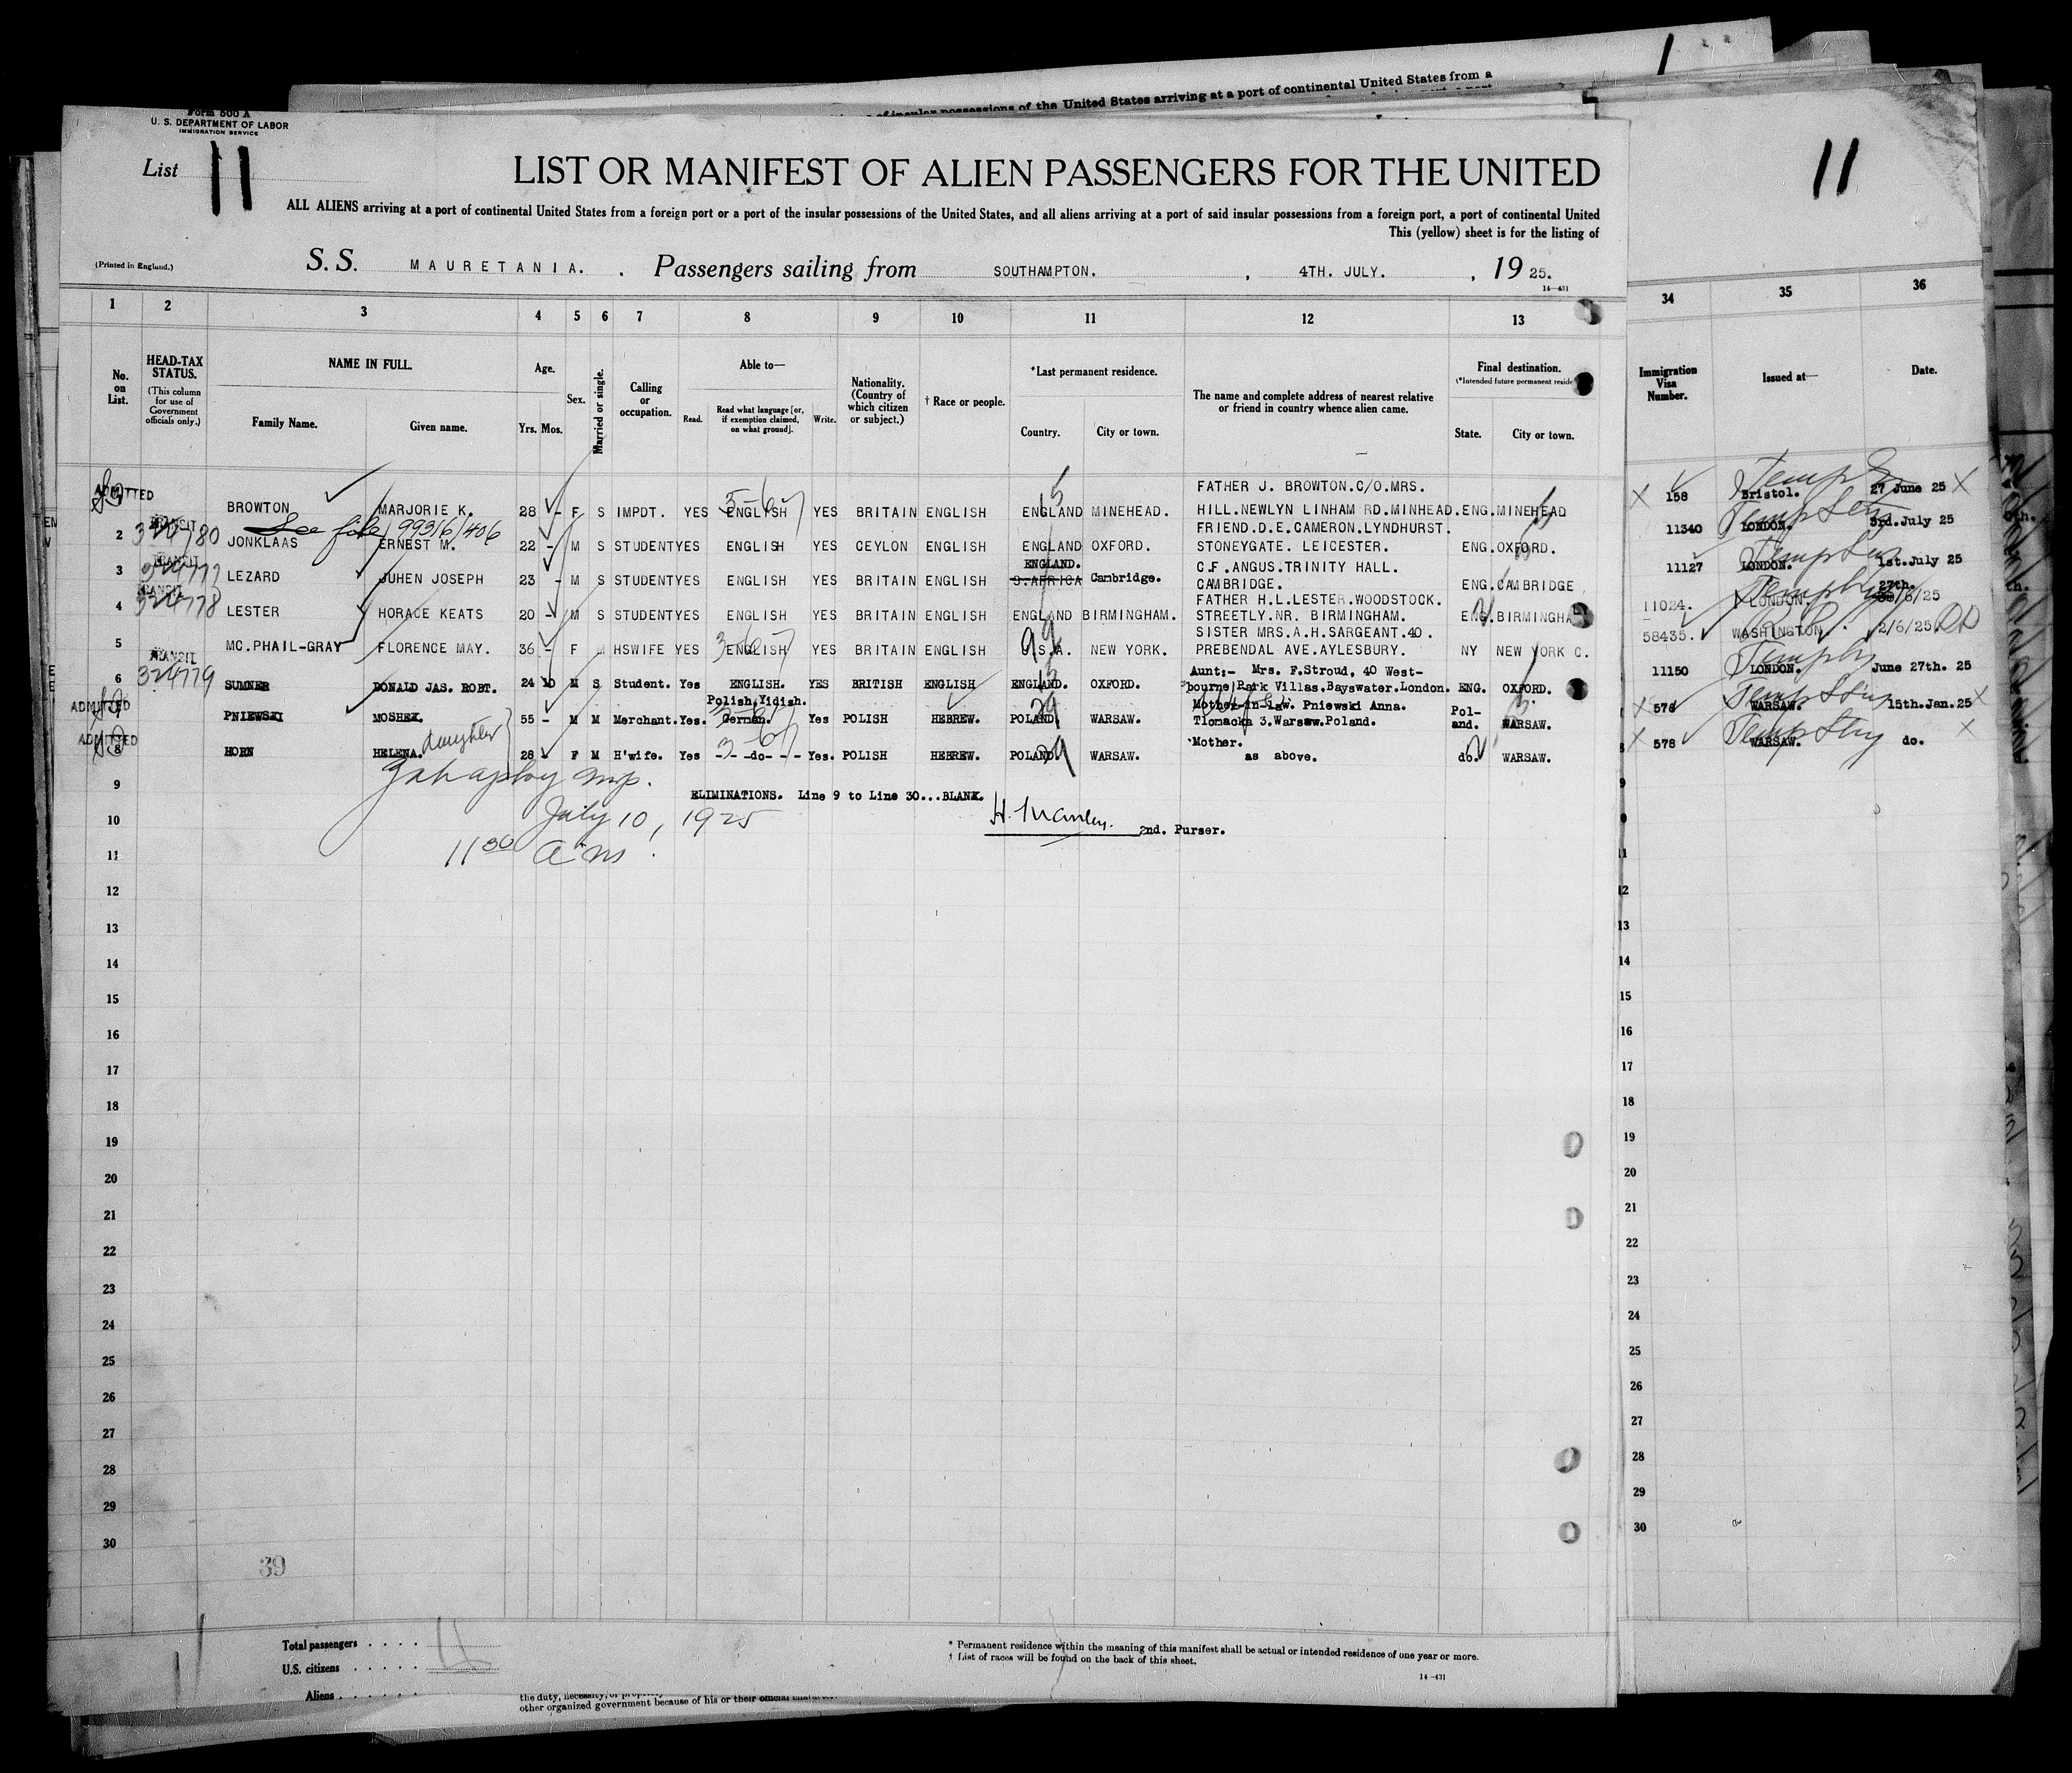 of insular possessions of the United States arriving at a port of continental United States from a
Form 500 A
U. S. DEPARTMENT OF LABOR
IMMIGRATION SERVICE
List 11
LIST OR MANIFEST OF ALIEN PASSENGERS FOR THE UNITED
11
ALL ALIENS arriving at a port of continental United States from a foreign port or a port of the insular possessions of the United States, and all aliens arriving at a port of said insular possessions from a foreign port, a port of continental United
This (yellow) sheet is for the listing of
(Printed in England.)
S. S. MAURETANIA. . Passengers sailing from SOUTHAMPTON. , 4TH. JULY. , 19 25.
14—431
1 2 3 4 5 6 7 8 9 10 11 12 13 34 35 36
No. on List.
HEAD-TAX STATUS.
(This column for use of Government officials only.)
NAME IN FULL.
Family Name. Given name.
Age.
Yrs. Mos.
Sex.
Married or single.
Calling or occupation.
Able to—
Read. Read what language [or, if exemption claimed, on what ground]. Write.
Nationality. (Country of which citizen or subject.)
† Race or people.
*Last permanent residence.
Country. City or town.
The name and complete address of nearest relative or friend in country whence alien came.
Final destination.
(*Intended future permanent reside
State. City or town.
Immigration Visa Number.
Issued at—
Date.
FATHER J. BROWTON.C/O.MRS.
ADMITTED BROWTON MARJORIE K. 28 - F S IMPDT. YES ENGLISH YES BRITAIN ENGLISH ENGLAND MINEHEAD. HILL.NEWLYN LINHAM RD.MINHEAD. ENG. MINEHEAD 158 Bristol. 27 June 25
See file 99316/406
FRIEND.D.E.CAMERON.LYNDHURST.
2 TRANSIT 324780 JONKLAAS ERNEST M. 22 - M S STUDENT YES ENGLISH YES CEYLON ENGLISH ENGLAND OXFORD. STONEYGATE. LEICESTER. ENG. OXFORD. 11340 LONDON. 3rd.July 25
ENGLAND. C.F.ANGUS.TRINITY HALL.
3 TRANSIT 324777 LEZARD JUHEN JOSEPH 23 - M S STUDENT YES ENGLISH YES BRITAIN ENGLISH S.AFRICA Cambridge. CAMBRIDGE. ENG. CAMBRIDGE 11127 LONDON. 1st.July 25
FATHER H.L.LESTER.WOODSTOCK. 27th.
4 TRANSIT 324778 LESTER HORACE KEATS 20 - M S STUDENT YES ENGLISH YES BRITAIN ENGLISH ENGLAND BIRMINGHAM. STREETLY.NR. BIRMINGHAM. ENG. BIRMINGHA 11024. LONDON /6/25
SISTER MRS.A.H.SARGEANT.40.
5 MC.PHAIL-GRAY FLORENCE MAY. 36 - F M HSWIFE YES ENGLISH YES BRITAIN ENGLISH U.S.A. NEW YORK. PREBENDAL AVE.AYLESBURY. NY NEW YORK C. 58435. WASHINGTON. 2/6/25
Aunt:- Mrs. F.Stroud, 40 West-
6 TRANSIT 324779 SUMNER DONALD JAS. ROBT. 24 10 M S Student. Yes ENGLISH. YES BRITISH ENGLISH ENGLAND. OXFORD. bourne Park Villas.Bayswater.London. ENG. OXFORD. 11150 LONDON. June 27th. 25
Polish,Yidish. Mother-in-law. Pniewski Anna. Pol-
ADMITTED PNIEWSKI MOSHEK. 55 - M M Merchant. Yes. German. Yes POLISH HEBREW. POLAND WARSAW. Tlomacka 3.Warsaw.Poland. and. WARSAW. 578 WARSAW. 15th.Jan.25
daughter
Mother.
ADMITTED 8 HORN HELENA. 28 F M H'wife. Yes - - -do- - - Yes. POLISH HEBREW. POLAND WARSAW. as above. do. WARSAW. 578 WARSAW. do.
9 ELIMINATIONS. Line 9 to Line 30...BLANK. 9
10 July 10, 1925 2nd. Purser.
11 11 30 a m. 11
12 12
13 13
14 14
15 15
16 16
17 17
18 18
19 19
20 20
21 21
22 22
23 23
24 24
25 25
26 26
27 27
28 28
29 29
30 30
39
Total passengers . . . .
U.S. citizens . . . . .
Aliens . . . . . .
* Permanent residence within the meaning of this manifest shall be actual or intended residence of one year or more.
† List of races will be found on the back of this sheet.
14—431
other organized government because of his or their official